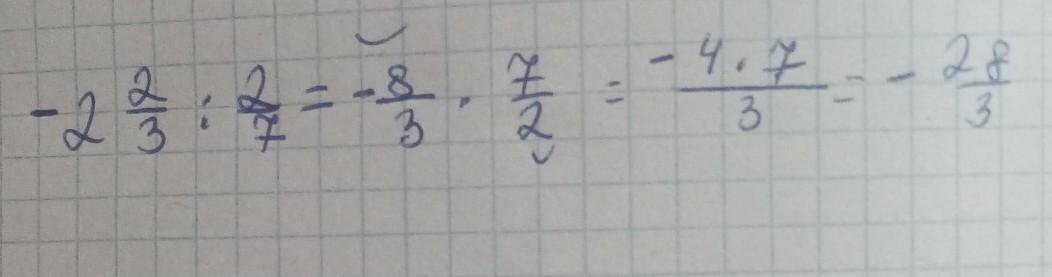 -2 2/3 : 2/7 = -8/3 · 7/2 = -4·7/3 = -28/3